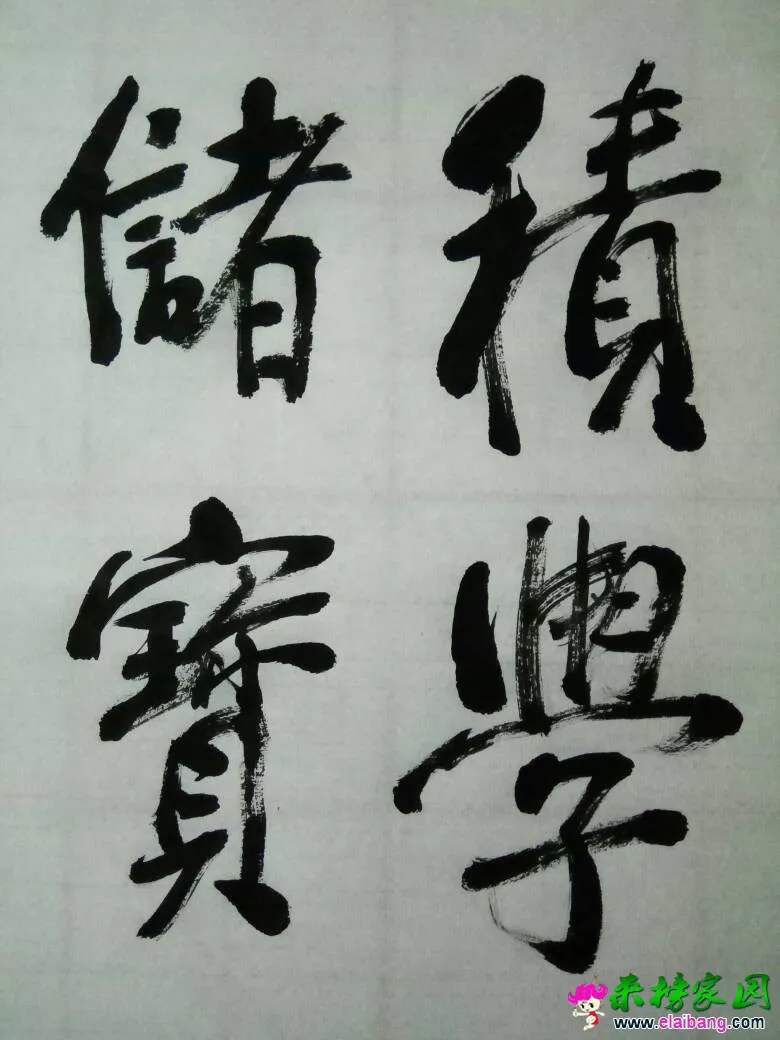 積學
儲寶
来榜家园
www.elaibang.com